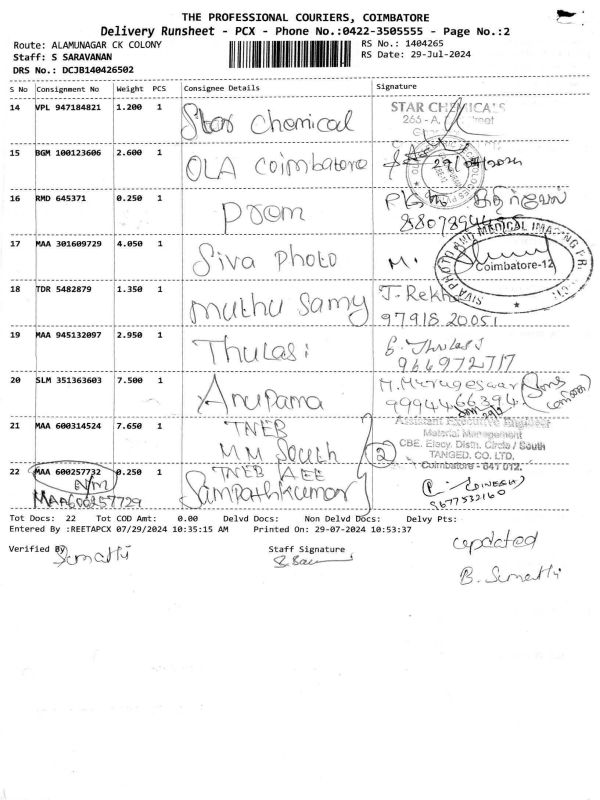 THE PROFESSIONAL COURIERS, COIMBATORE
Delivery Runsheet - PCX - Phone No.:0422-3505555 - Page No.:2
Route: ALAMUNAGAR CK COLONY RS No.: 1404265
Staff: S SARAVANAN RS Date: 29-Jul-2024
DRS No.: DCJB140426502
S No Consignment No Weight PCS Consignee Details Signature
14 VPL 947184821 1.200 1 Star Chemical STAR CHEMICALS
15 BGM 100123606 2.600 1 OLA Coimbatore
16 RMD 645371 0.250 1 Prem
17 MAA 301609729 4.050 1 Siva Photo M. SIVA PHOTO AND MEDICAL IMAGING Coimbatore-12
18 TDR 5482879 1.350 1 Muthu Samy J. Rekha
97918 20051
19 MAA 945132097 2.950 1 Thulasi
9664972717
20 SLM 351363603 7.500 1 Anupama M. Murugesaar
9994466394
21 MAA 600314524 7.650 1 TNEB
MM South 2
Assistant Executive Engineer
Material Management
CBE. Elecy. Distn. Circle / South
TANGED. CO. LTD,
Coimbatore - 641 012.
22 MAA 600257732 0.250 1 TNEB AEE
Sampathkumar
N/M
MAA600257729
9677532160
Tot Docs: 22 Tot COD Amt: 0.00 Delvd Docs: Non Delvd Docs: Delvy Pts:
Entered By :REETAPCX 07/29/2024 10:35:15 AM Printed On: 29-07-2024 10:53:37
Verified By Sumathi Staff Signature updated
B. Sumathi